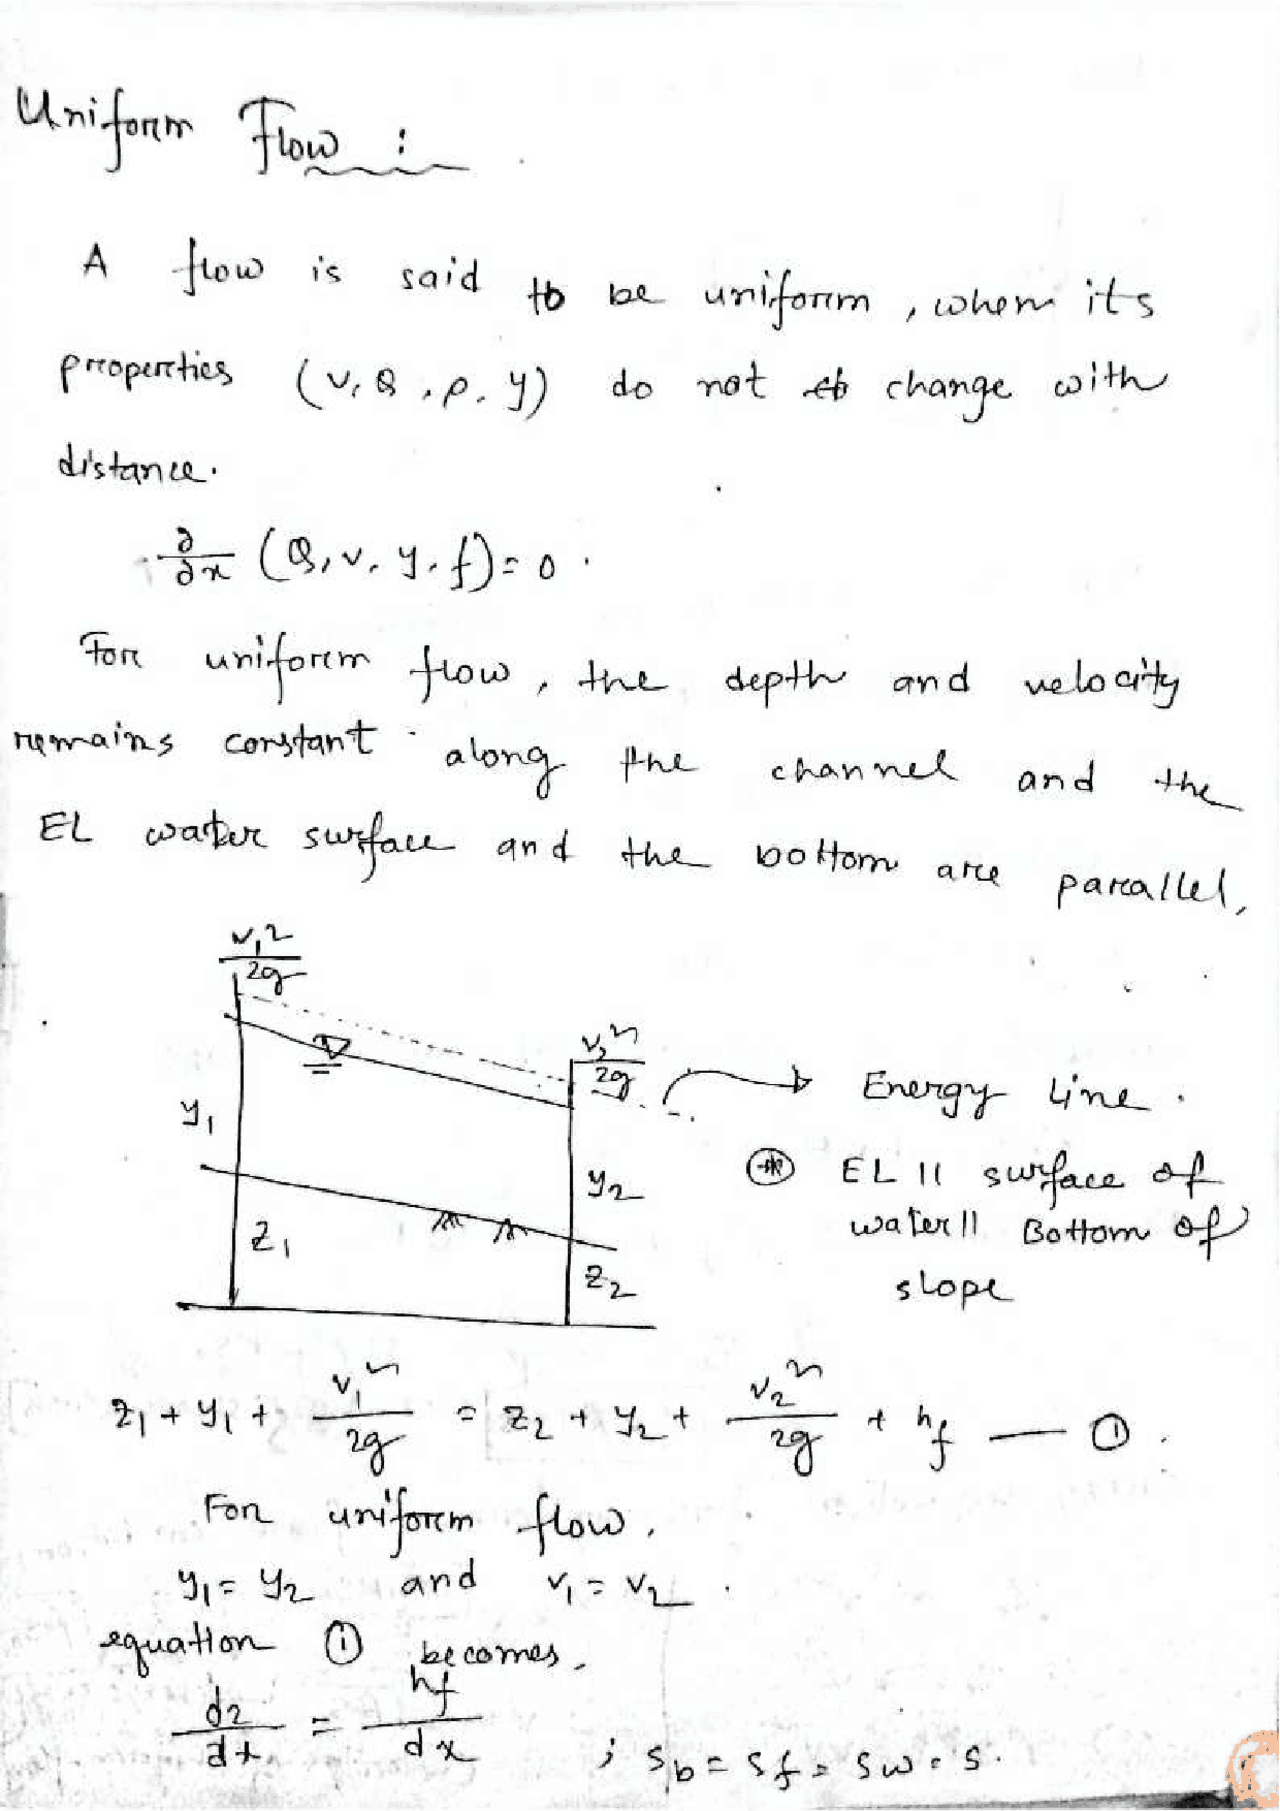 Uniform Flow :
A flow is said to be uniform, when its
properties (v, Q, ρ, y) do not change with
distance.
∂/∂x (Q, v, y, f) = 0.
For uniform flow, the depth and velocity
remains constant along the channel and the
EL water surface and the bottom are parallel,
v₁²/2g
v₂²/2g
Energy Line.
y₁
y₂
⊛ EL || surface of
water || Bottom of
slope
z₁
z₂
z₁ + y₁ + v₁²/2g = z₂ + y₂ + v₂²/2g + hf — ①.
For uniform flow,
y₁ = y₂ and v₁ = v₂.
equation ① becomes,
dz/dx = hf/dx ; Sb = Sf = Sw = S.